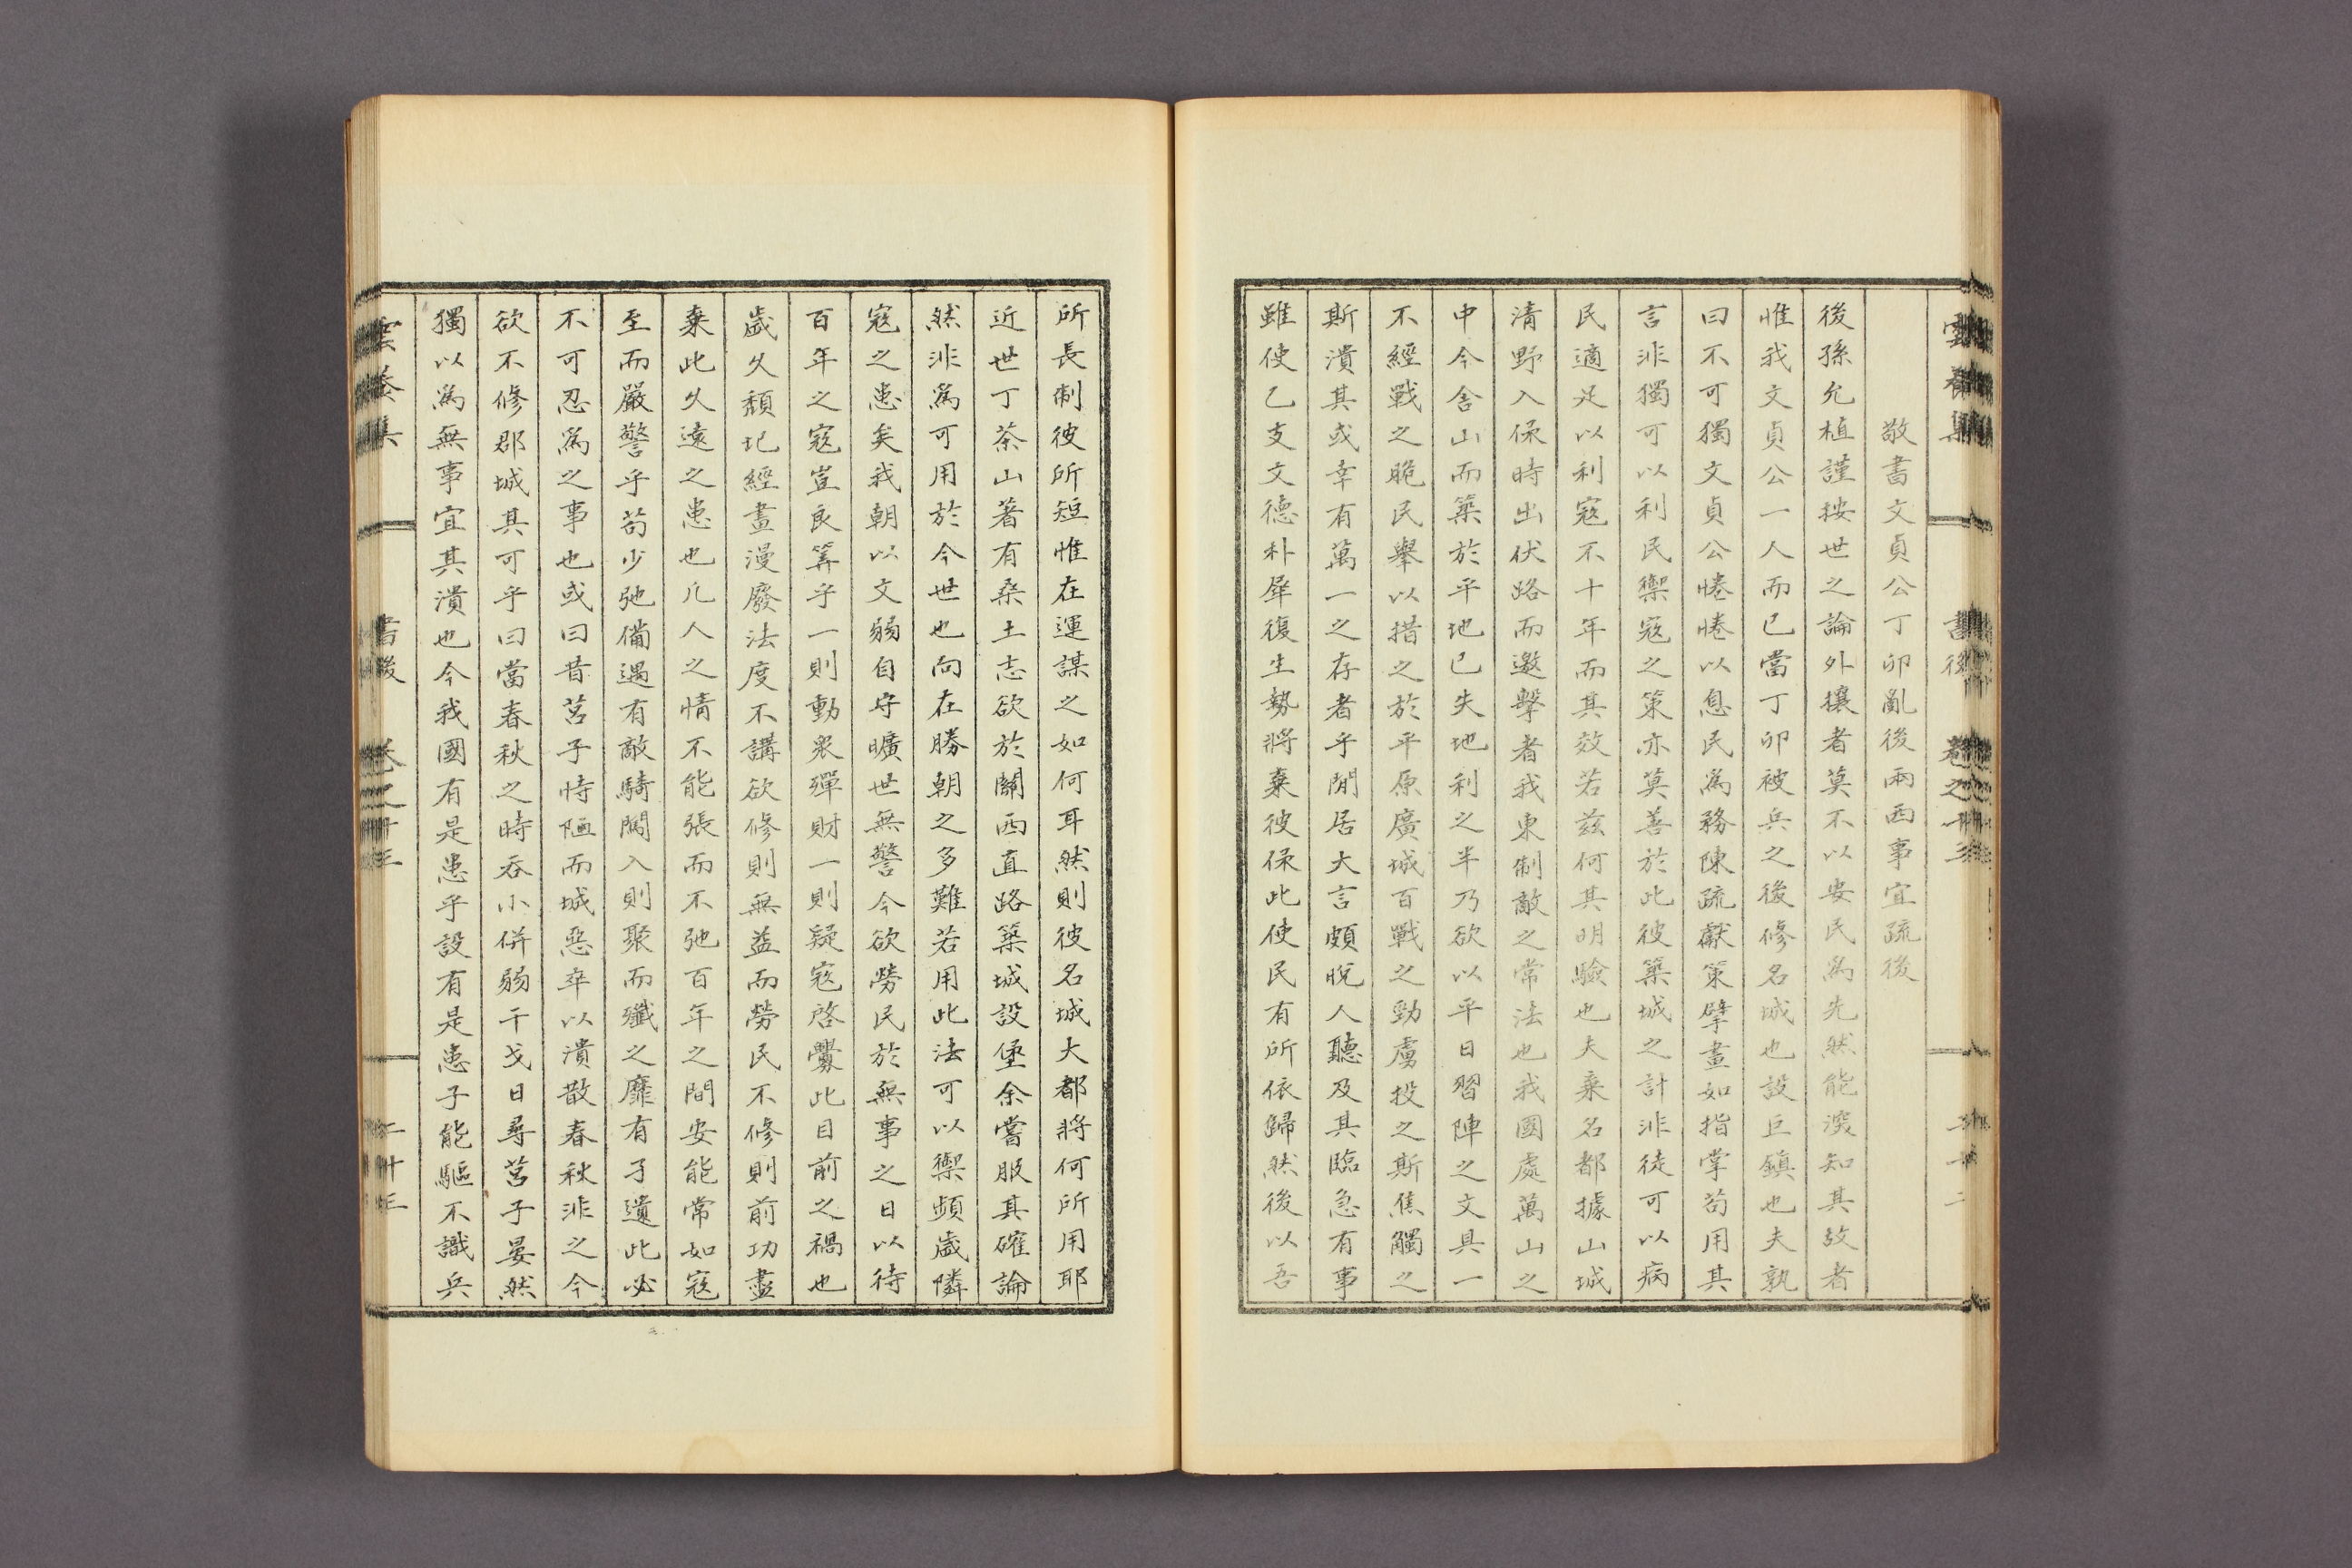 敬書文貞公丁卯亂後兩西事宜疏後
後孫允植謹按世之論外攘者莫不以安民爲先然能深知其故者
惟我文貞公一人而已當丁卯被兵之後修名城也設巨鎮也夫孰
曰不可獨文貞公惓惓以息民爲務陳疏獻策擘畫如指掌苟用其
言非獨可以利民禦寇之策亦莫善於此彼築城之計非徒可以病
民適足以利寇不十年而其效若玆何其明驗也夫棄名都據山城
清野入保時出伏路而邀擊者我東制敵之常法也我國處萬山之
中今舍山而築於平地已失地利之半乃欲以平日習陣之文具一
不經戰之脆民舉以措之於平原廣城百戰之勁虜投之斯焦觸之
斯潰其或幸有萬一之存者乎閒居大言頗悅人聽及其臨急有事
雖使乙支文德朴犀復生勢將棄彼保此使民有所依歸然後以吾
所長制彼所短惟在運謀之如何耳然則彼名城大都將何所用耶
近世丁茶山著有桑土志欲於關西直路築城設堡余嘗服其確論
然非爲可用於今世也向在勝朝之多難若用此法可以禦頻歲隣
寇之患矣我朝以文弱自守曠世無警今欲勞民於無事之日以待
百年之寇豈良筭乎一則動衆殫財一則疑寇啓釁此目前之禍也
歲久頹圮經畫漫廢法度不講欲修則無益而勞民不修則前功盡
棄此久遠之患也凡人之情不能張而不弛百年之間安能常如寇
至而嚴警乎苟少弛備遇有敵騎闖入則聚而殲之靡有孑遺此必
不可忍爲之事也或曰昔莒子恃陋而城惡卒以潰散春秋非之今
欲不修郡城其可乎曰當春秋之時呑小併弱干戈日尋莒子晏然
獨以爲無事宜其潰也今我國有是患乎設有是患子能驅不識兵